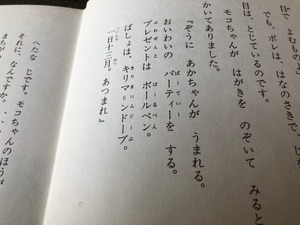 で よむものよ
でも、ポレは、はなのさきで、じ
目は、とじているのです。
モコちゃんが はがきを のぞいて みると
かいてありました。
『ぞうに あかちゃんが うまれる。
おいわいの パーティーを する。
プレゼントは ボールペン。
ばしょは、キリマ=ンドープ。
一日十二月。あつまれ』
へたな じです。モコちゃんのほうが
それに、なんですか。
まちが